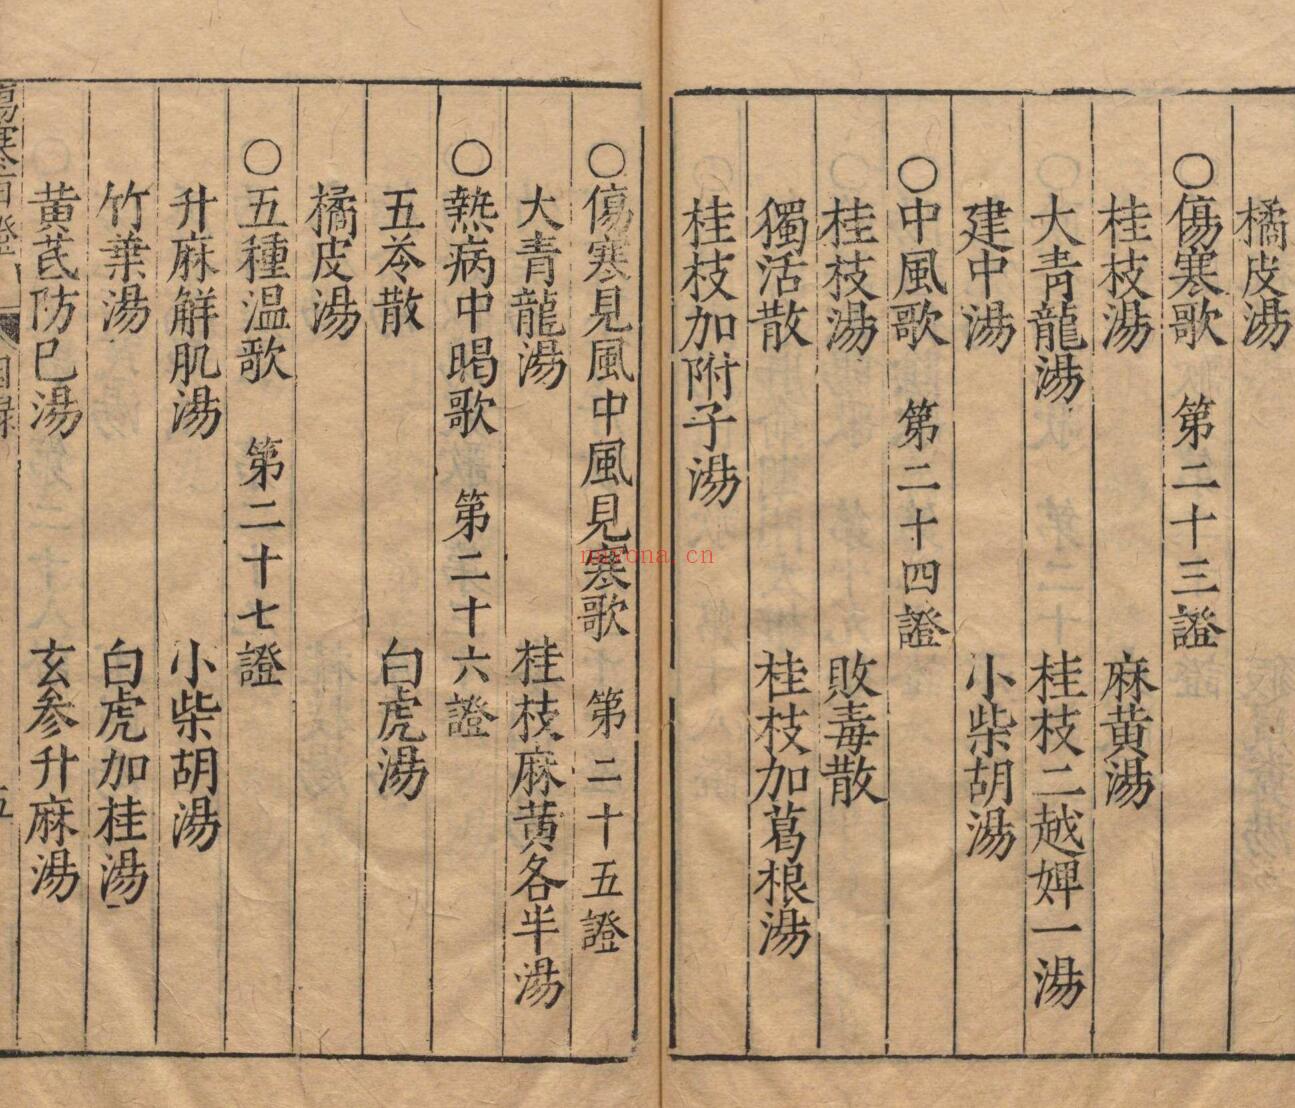 橘皮湯
○傷寒歌 第二十三證
桂枝湯 麻黃湯
大青龍湯 桂枝二越婢一湯
建中湯 小柴胡湯
○中風歌 第二十四證
桂枝湯 敗毒散
獨活散 桂枝加葛根湯
桂枝加附子湯
○傷寒見風中風見寒歌 第二十五證
大青龍湯 桂枝麻黃各半湯
○熱病中暍歌 第二十六證
五苓散 白虎湯
橘皮湯
○五種温歌 第二十七證
升麻解肌湯 小柴胡湯
竹葉湯 白虎加桂湯
黃芪防巳湯 玄參升麻湯
傷寒百證 目録 五
nayona.cn